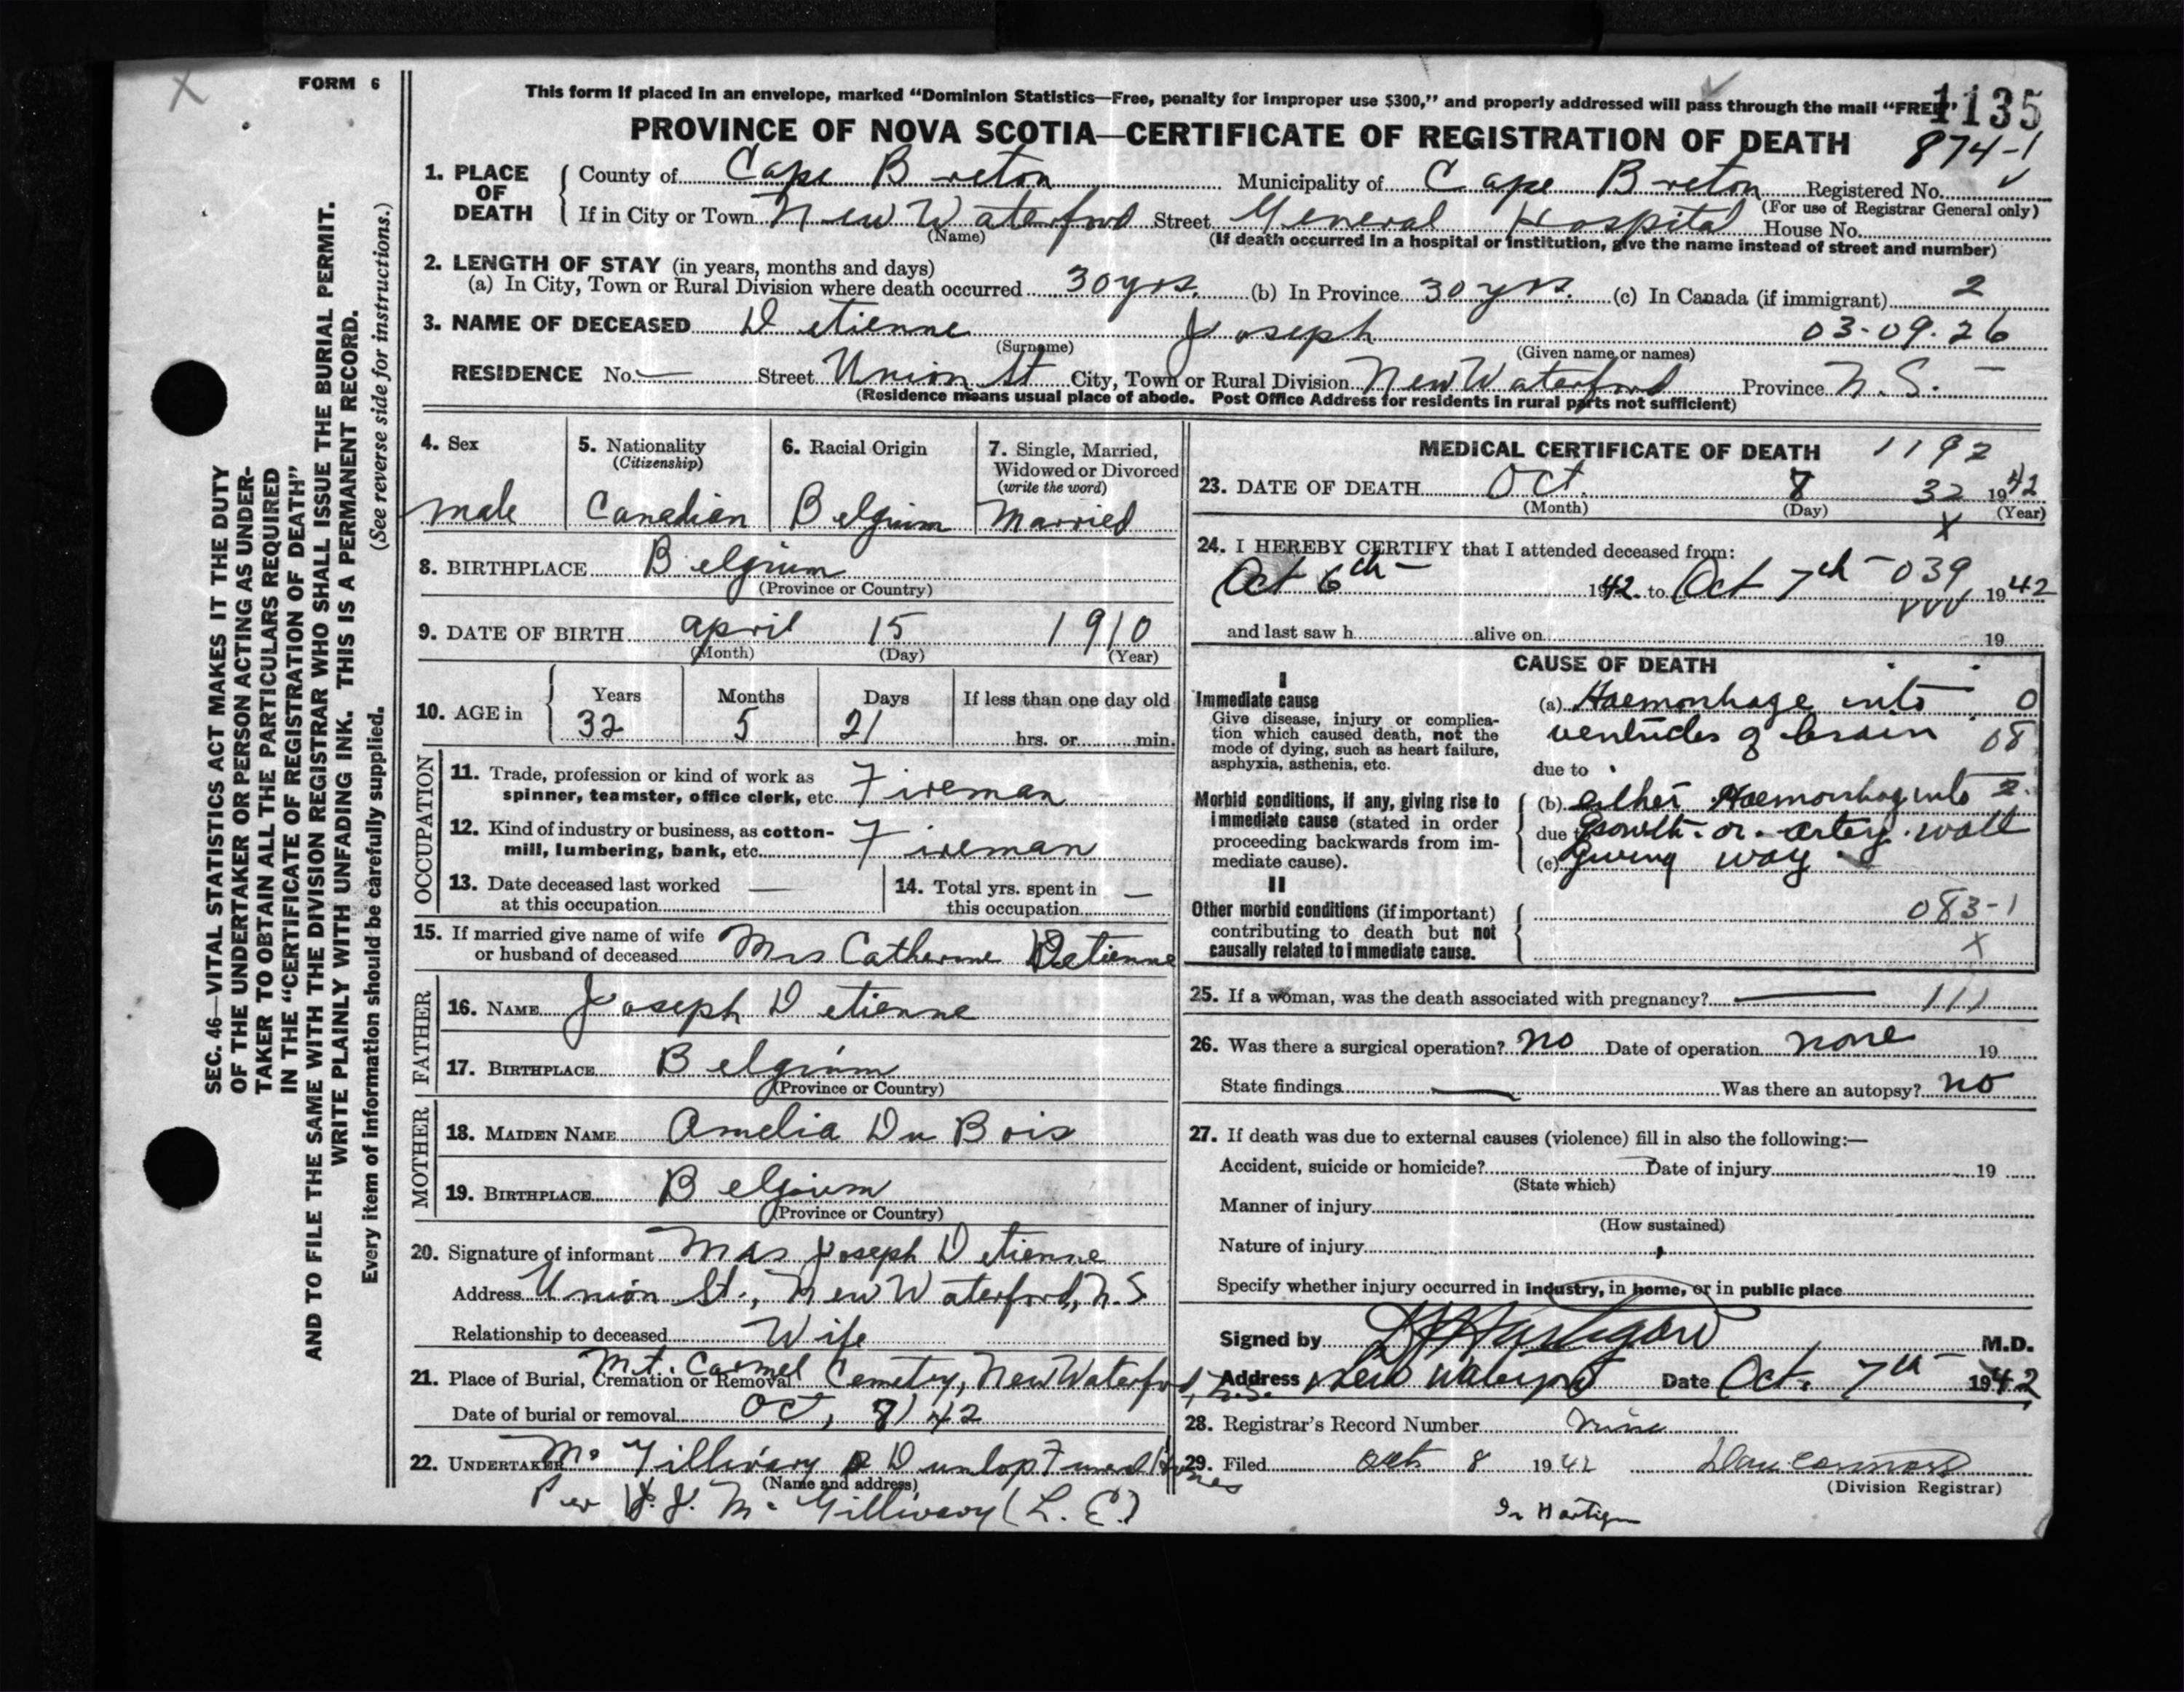 FORM 6
This form if placed in an envelope, marked "Dominion Statistics—Free, penalty for improper use $300," and properly addressed will pass through the mail "FREE"
1135
PROVINCE OF NOVA SCOTIA—CERTIFICATE OF REGISTRATION OF DEATH 874-1
1. PLACE OF DEATH County of Cape Breton Municipality of Cape Breton Registered No.
(For use of Registrar General only)
If in City or Town New Waterford Street General Hospital House No.
(Name) (If death occurred in a hospital or institution, give the name instead of street and number)
2. LENGTH OF STAY (in years, months and days)
(a) In City, Town or Rural Division where death occurred 30 yrs. (b) In Province 30 yrs. (c) In Canada (if immigrant) 2
3. NAME OF DECEASED Detienne Joseph 03-09-26
(Surname) (Given name or names)
RESIDENCE No. — Street Union St City, Town or Rural Division New Waterford Province N.S. —
(Residence means usual place of abode. Post Office Address for residents in rural parts not sufficient)
4. Sex male
5. Nationality (Citizenship) Canadian
6. Racial Origin Belgium
7. Single, Married, Widowed or Divorced (write the word) Married
8. BIRTHPLACE Belgium
(Province or Country)
9. DATE OF BIRTH April 15 1910
(Month) (Day) (Year)
10. AGE in Years 32 Months 5 Days 21 If less than one day old hrs. or min.
OCCUPATION
11. Trade, profession or kind of work as spinner, teamster, office clerk, etc. Fireman
12. Kind of industry or business, as cotton-mill, lumbering, bank, etc. Fireman
13. Date deceased last worked at this occupation —
14. Total yrs. spent in this occupation —
15. If married give name of wife or husband of deceased Mrs Catherine Detienne
FATHER
16. NAME Joseph Detienne
17. BIRTHPLACE Belgium
(Province or Country)
MOTHER
18. MAIDEN NAME Amelia Du Bois
19. BIRTHPLACE Belgium
(Province or Country)
20. Signature of informant Mrs Joseph Detienne
Address Union St., New Waterford, N.S
Relationship to deceased Wife
21. Place of Burial, Cremation or Removal Mt. Carmel Cemetry, New Waterford, N.S.
Date of burial or removal Oct, 8/42
22. UNDERTAKER Mc Gillivary & Dunlop Funeral Homes
(Name and address)
Per J. J. Mc Gillivary (L. E.)
MEDICAL CERTIFICATE OF DEATH 1192
23. DATE OF DEATH Oct. 8 32 1942
(Month) (Day) (Year)
X
24. I HEREBY CERTIFY that I attended deceased from:
Oct 6th 1942 to Oct 7th 039 1942
and last saw h alive on 19
CAUSE OF DEATH
I
Immediate cause
Give disease, injury or complication which caused death, not the mode of dying, such as heart failure, asphyxia, asthenia, etc.
(a) Haemorrhage into 0
ventricles of brain 08
due to
Morbid conditions, if any, giving rise to immediate cause (stated in order proceeding backwards from immediate cause).
(b) either Haemorrhag into 2
due to growth or artery wall
(c) giving way
II
Other morbid conditions (if important) contributing to death but not causally related to immediate cause.
083-1
X
25. If a woman, was the death associated with pregnancy? — 111
26. Was there a surgical operation? no Date of operation none 19
State findings — Was there an autopsy? no
27. If death was due to external causes (violence) fill in also the following:—
Accident, suicide or homicide? Date of injury 19
(State which)
Manner of injury
(How sustained)
Nature of injury
Specify whether injury occurred in industry, in home, or in public place
Signed by Hartigan M.D.
Address New Waterford Date Oct. 7th 1942
28. Registrar's Record Number nine
29. Filed Oct 8 1942
(Division Registrar)
Dr Hartigan
SEC. 46—VITAL STATISTICS ACT MAKES IT THE DUTY
OF THE UNDERTAKER OR PERSON ACTING AS UNDER-
TAKER TO OBTAIN ALL THE PARTICULARS REQUIRED
IN THE "CERTIFICATE OF REGISTRATION OF DEATH"
AND TO FILE THE SAME WITH THE DIVISION REGISTRAR WHO SHALL ISSUE THE BURIAL PERMIT.
WRITE PLAINLY WITH UNFADING INK. THIS IS A PERMANENT RECORD.
Every item of information should be carefully supplied. (See reverse side for instructions.)